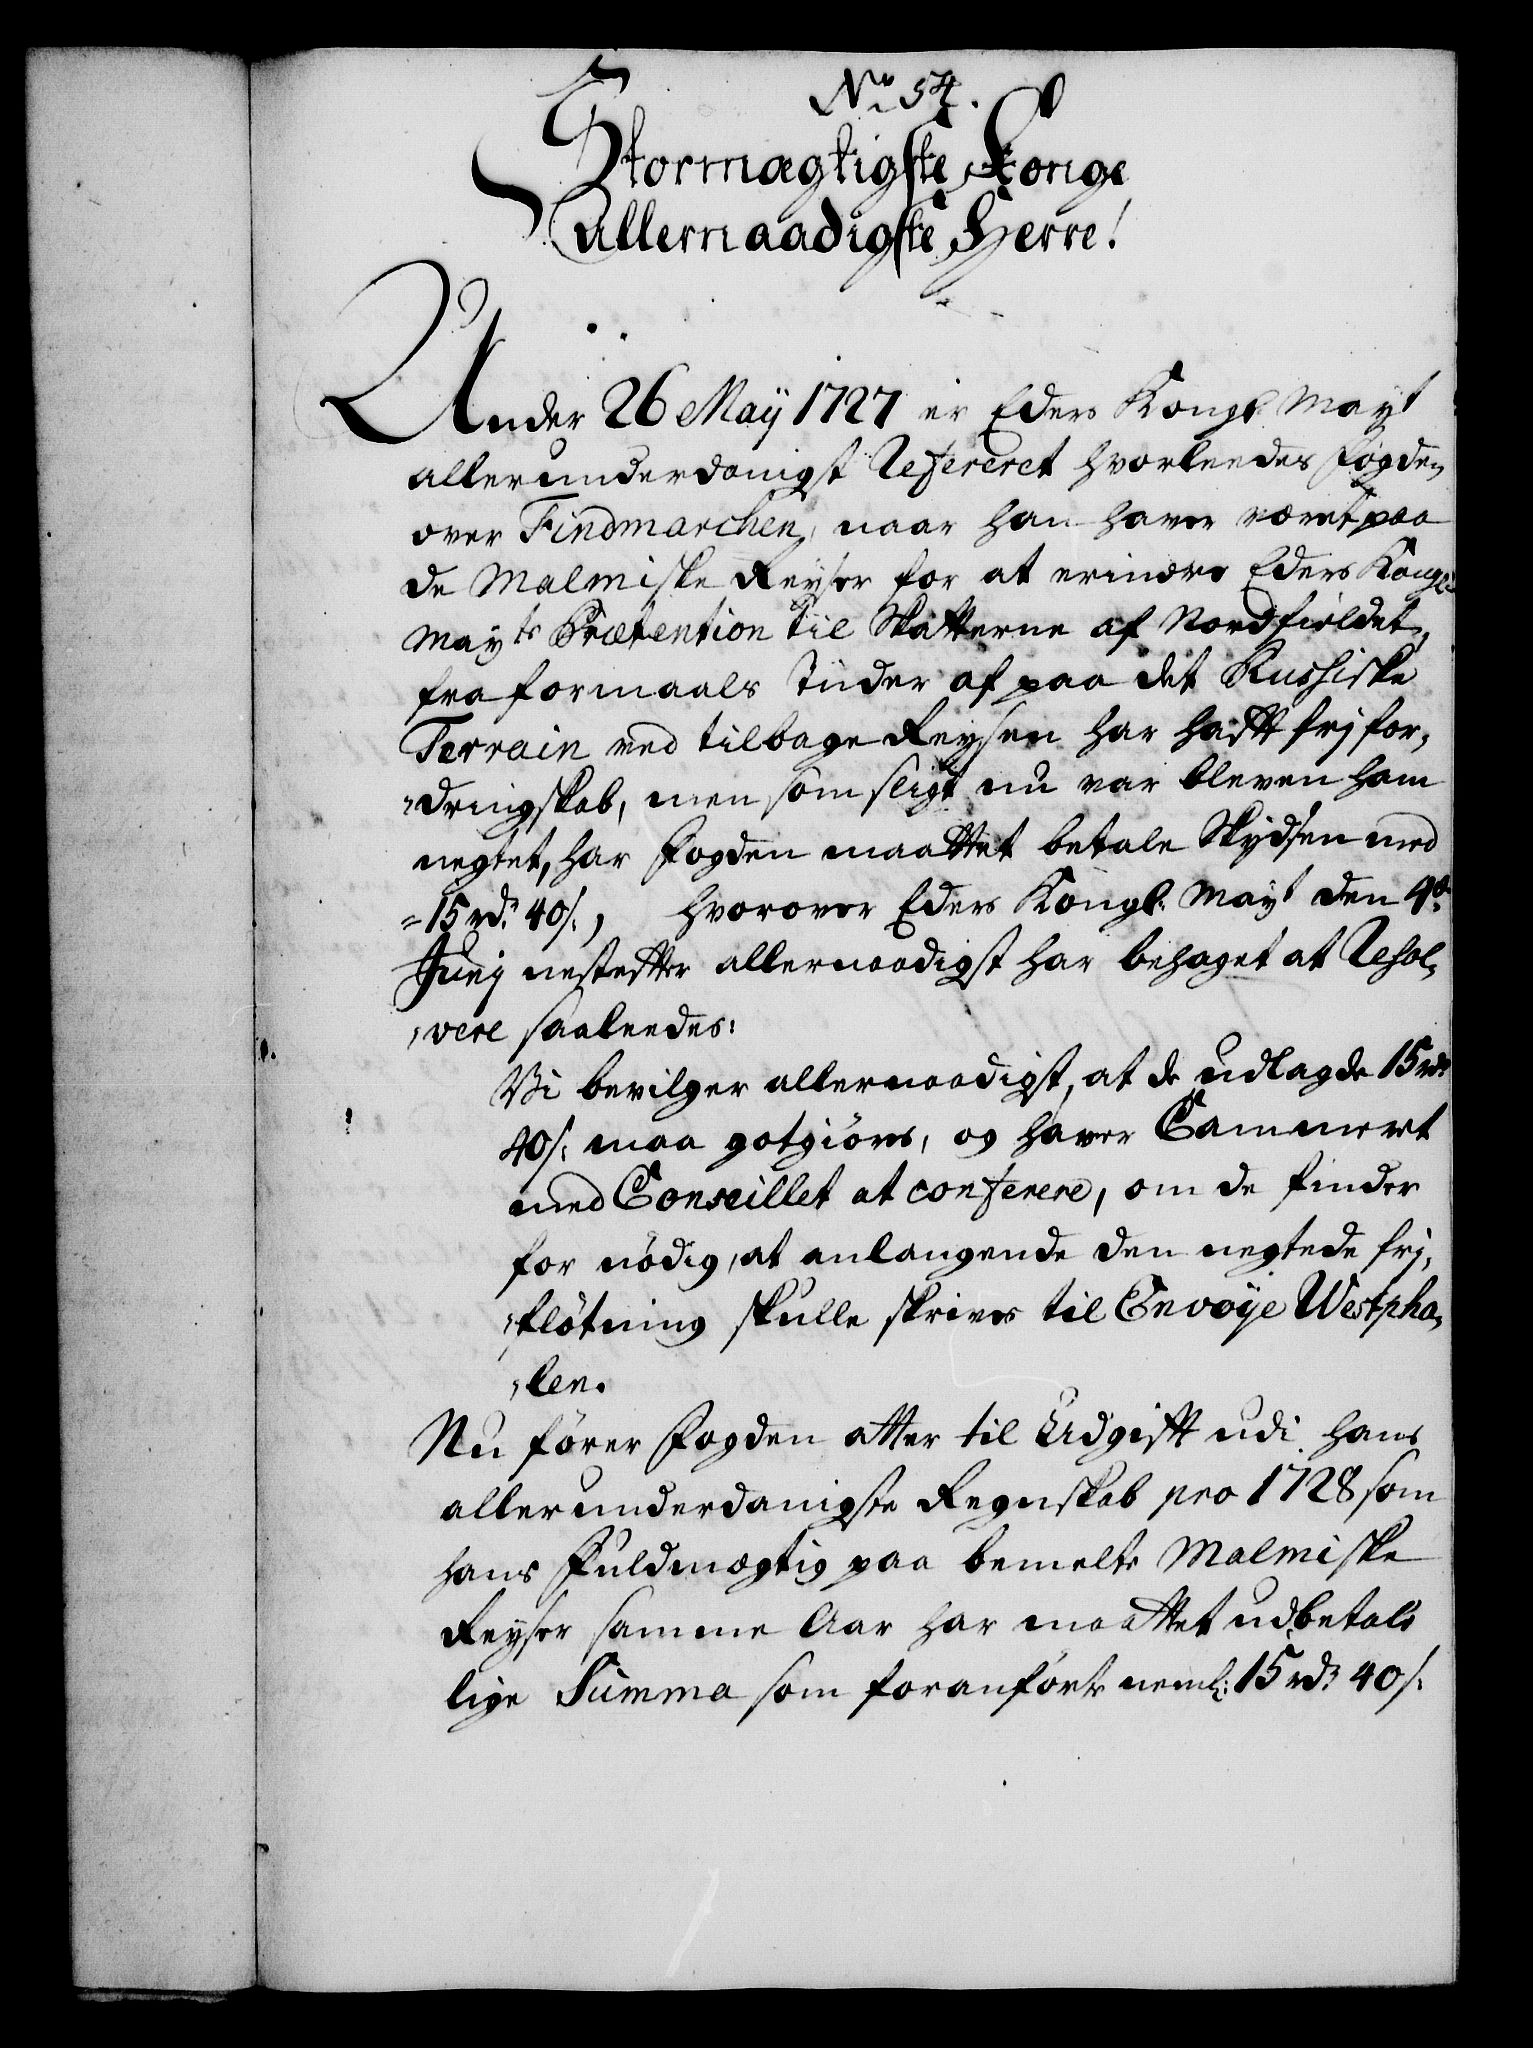 No 54.
Stormægtigste Konge
Allernaadigste Herre!
Under 26 Maÿ 1727 er Eders Kongl: Mayt
allerunderdanigst Refereret hvorleedes fogden
over Findmarchen, naar han haver været paa
de Malmiske Reyser for at erindre Eders Kongl:
Mayts Prætention til Skatterne af Nordfieldet,
fra formaals Tiider af paa det Russiske
Terrain ved tilbage Reysen har hafft frj for,
„dringskab, men som sligt nu var bleven ham
negtet, har fogden maattet betale Skydsen med
=15 rdr 40 s:, hvorover Eders Kongl: Mayt den 4de
Junj nestefter allernaadigst har behaget at Resol,
„vere saaleedes:
Vi bevilger allernaadigst, at de udlagde 15 rdr
40 s: maa gotgiöres, og haver Cammeret
med Conseillet at conferere, om de finder
for nödig, at anlangende den negtede frj,
„flötning skulle skrives til Envoÿe Westpha,
„len.
Nu förer fogden atter til Udgifft udi hans
allerunderdanigste Regnskab pro 1728 som
hans Fuldmægtig paa bemelte Malmiske
Reyser samme Aar har maattet udbetale
lige Summa som foranförte neml: 15 rdr 40 s: